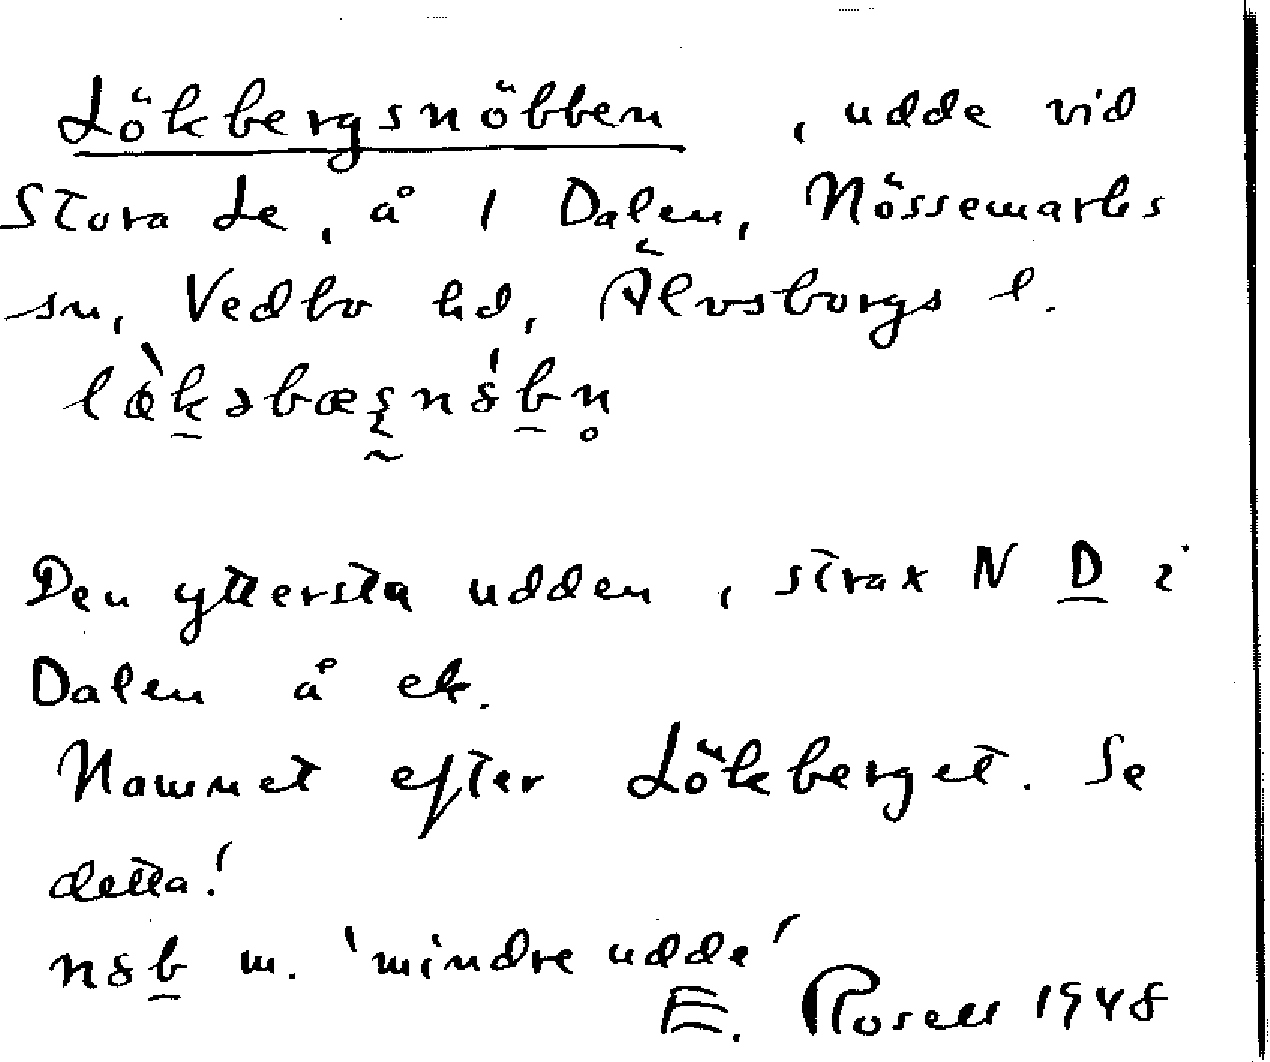 Lökbergsnöbben, udde vid
Stora Le, å 1 Dalen, Nössemarks
sn, Vedbo hd, Älvsborgs l.
Den yttersta udden, strax N D i
Dalen å ek.
Namnet efter Lökberget. Se
detta!
m. 'mindre udde'
E. Rosell 1948